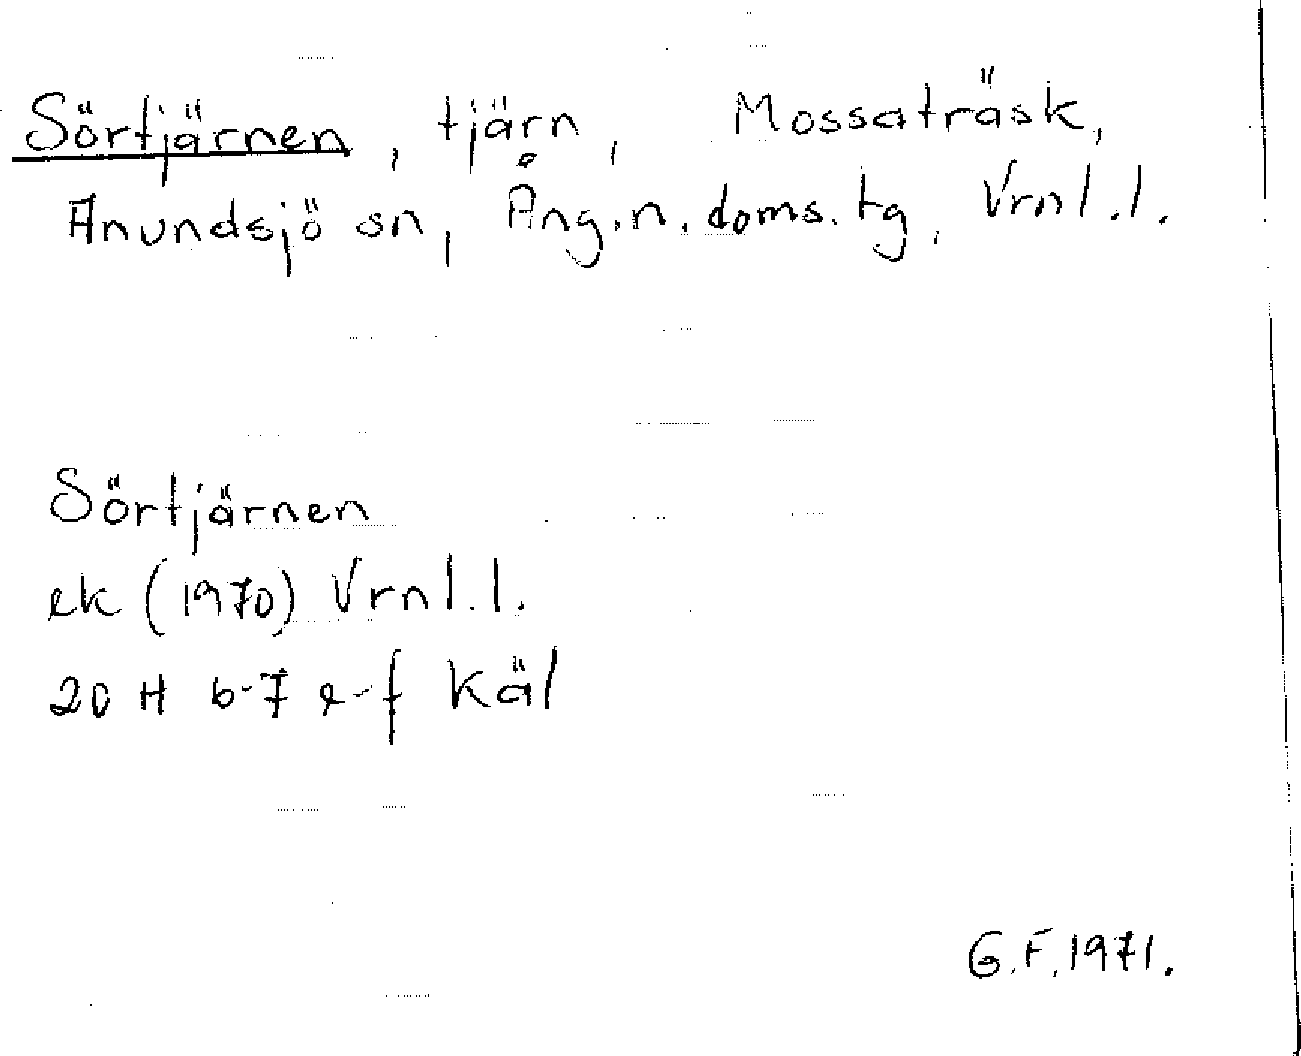 Sörtjärnen, tjärn, Mossaträsk,
Anundsjö sn, Ång.n.doms.tg, Vrnl.l.
Sörtjärnen
ek (1970) Vrnl.l.
20 H 6-7 e-f Käl
G.F.1971.